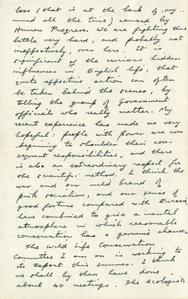 loss (that is at the back of my
mind all the time) caused by
Human Progress. We are fighting this
battle very hard, and probably not
ineffectively, over here. It is
significant of the curious hidden
influences in English life, that
quite effective action can often
be taken behind the scenes, by
tolling the group of Government
officials who really matter. My
recent experience has made me very
hopeful: people with power are now
beginning to shoulder their con-
sequent responsibilities, and there
is also an extraordinary respect for
the scientific method. I think the
war and our mild brand of
pink socialism, and our sense of
good fortune compared with Europe
have combined to give a mental
atmosphere in which reasonable
conservation has a genuine chance.
The Wild Life Conservation
Committee I am on is working to
its Report this summer. I think
we shall by then have done
about 40 meetings. The ecologist